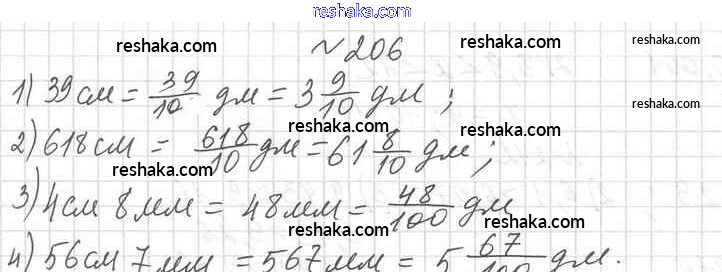 reshaka.com
№206
reshaka.com reshaka.com
1) 39 см = 39/10 дм = 3 9/10 дм ;
reshaka.com reshaka.com
2) 618 см = 618/10 дм = 61 8/10 дм ;
reshaka.com reshaka.com
3) 4 см 8 мм = 48 мм = 48/100 дм
reshaka.com reshaka.com
4) 56 см 7 мм = 567 мм = 5 67/100 дм.